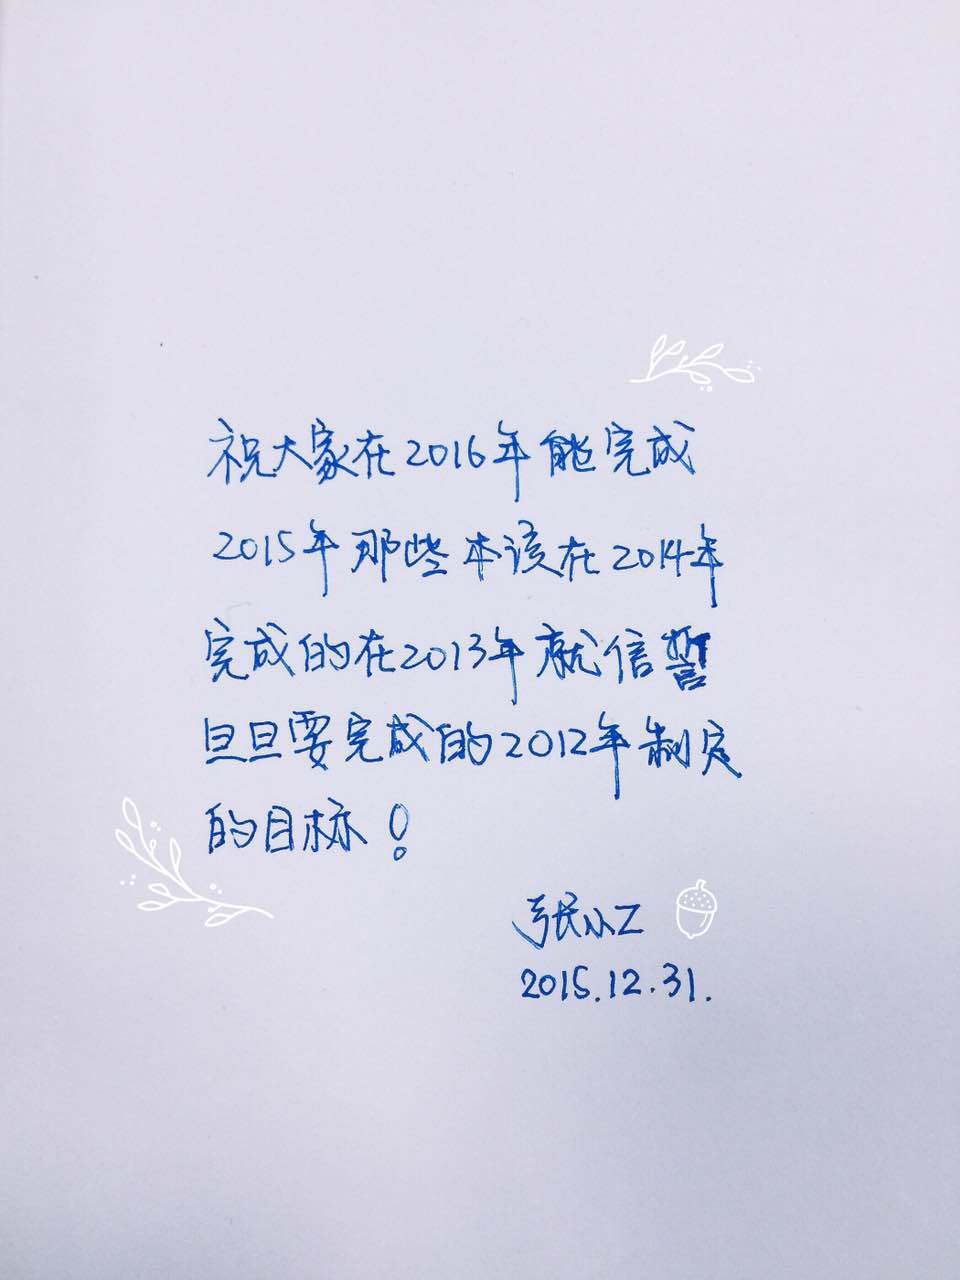 祝大家在2016年能完成
2015年那些本该在2014年
完成的在2013年就信誓
旦旦要完成的2012年制定
的目标！
张小Z
2015.12.31.